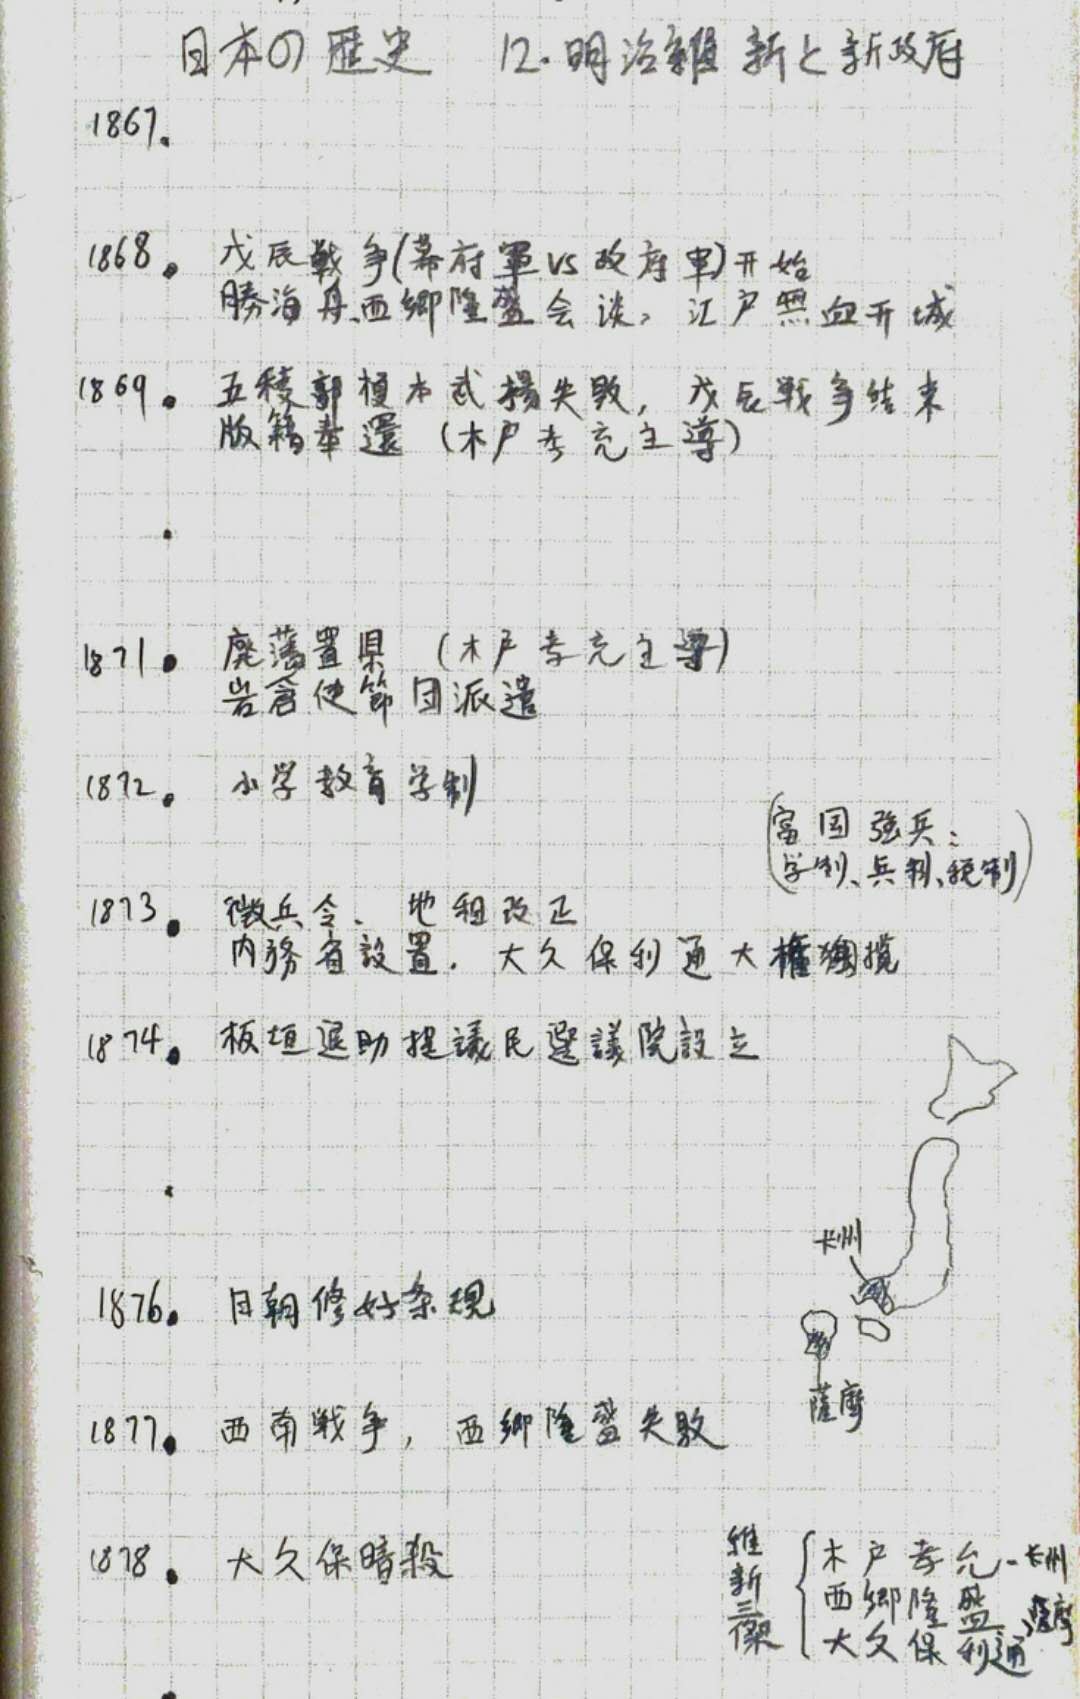 日本の歴史 12.明治維新と新政府
1867.
1868. 戊辰戦争(幕府軍vs政府軍)开始
勝海舟、西郷隆盛会谈, 江戸無血开城
1869. 五稜郭榎本武揚失敗, 戊辰戦争结束
版籍奉還 (木戸孝允主導)
1871. 廃藩置県 (木戸孝允主導)
岩倉使節団派遣
1872. 小学教育学制
(富国強兵:
学制、兵制、税制)
1873. 徴兵令、地租改正
内務省設置. 大久保利通大権独揽
1874. 板垣退助提議民選議院設立
长州
1876. 日朝修好条規
薩摩
1877. 西南戦争, 西郷隆盛失敗
1878. 大久保暗殺
維新三傑
木戸孝允-长州
西郷隆盛
大久保利通 薩摩